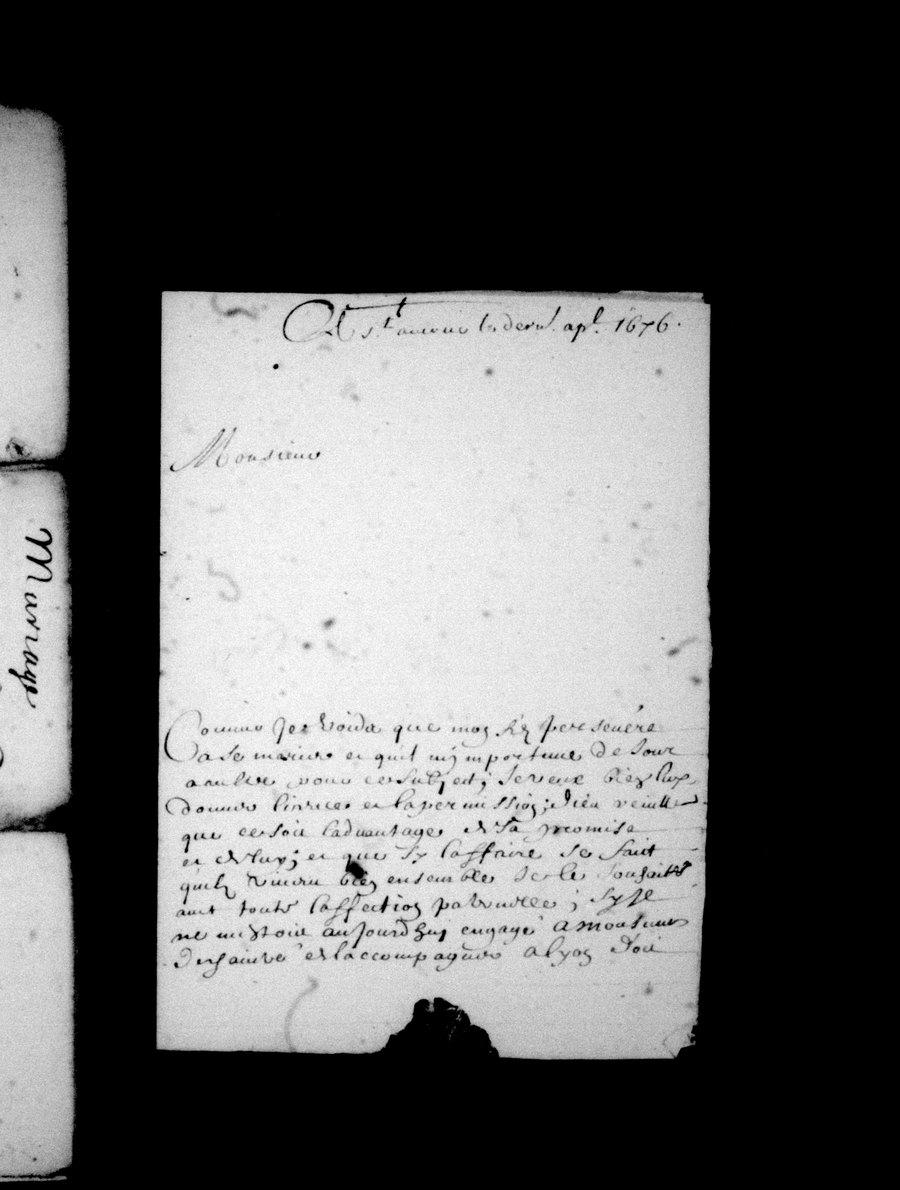 De St. le dern. apl. 1676.
Monsieur
Comme Je voids que mon filz persevere
a se marier et quil m'importune de Jour
a aultre pour ce subject, Je veux bien luy
donner licence et la permission; Dieu veuille
que ce soit ladvantage de sa promise
et de luy; et que sy laffaire se faict
quilz vivent bien ensemble Je le souhaitte
avec toute laffection paternelle; sy Je
ne mestois aujourdhuy engagé a monsieur
de laccompagner a lyon Doù
Mariage